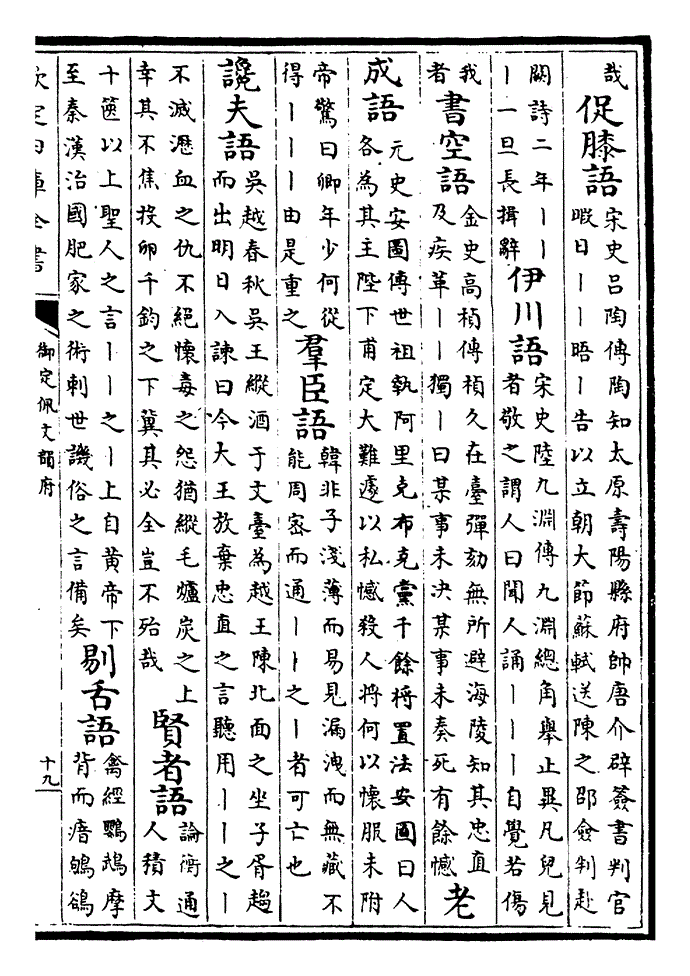 哉
促膝語
宋史呂陶傳陶知太原壽陽縣府帥唐介辟簽書判官
暇日丨丨晤丨告以立朝大節蘇軾送陳之邵僉判赴
闕詩二年丨丨
丨一旦長揖辭
伊川語
宋史陸九淵傳九淵總角舉止異凡兒見
者敬之謂人曰聞人誦丨丨丨自覺若傷
我
者
書空語
金史高楨傳楨久在臺彈劾無所避海陵知其忠直
及疾革丨丨獨丨曰某事未決某事未奏死有餘憾
老
成語
元史安圖傳世祖執阿里克布克黨千餘將置法安圖曰人
各為其主陛下甫定大難遽以私憾殺人將何以懷服未附
帝驚曰卿年少何從
得丨丨丨由是重之
羣臣語
韓非子淺薄而易見漏洩而無藏不
能周密而通丨丨之丨者可亡也
讒夫語
吳越春秋吳王縱酒于文臺為越王陳北面之坐子胥趨
而出明日入諫曰今大王放棄忠直之言聽用丨丨之丨
不滅瀝血之仇不絕懷毒之怨猶縱毛爐炭之上
幸其不焦投卵千鈞之下冀其必全豈不殆哉
賢者語
論衡通
人積文
十篋以上聖人之言丨丨之丨上自黃帝下
至秦漢治國肥家之術刺世譏俗之言備矣
剔舌語
禽經鸚鵡摩
背而瘖鴝鵒
欽定四庫全書
御定佩文韻府
十九